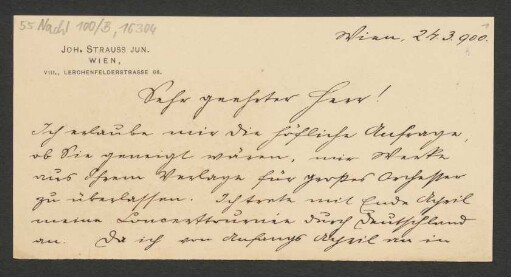 55 Nachl 100/B, 16304
JOH. STRAUSS JUN.
WIEN,
VIII., LERCHENFELDERSTRASSE 66.
Wien, 24.3.900.
Sehr geehrter Herr!
Ich erlaube mir die höfliche Anfrage,
ob Sie geneigt wären, mir Werke
aus Ihrem Verlage für großes Orchester
zu überlassen. Ich trete mit Ende April
meine Concerttournée durch Deutschland
an. Da ich von Anfangs April an in